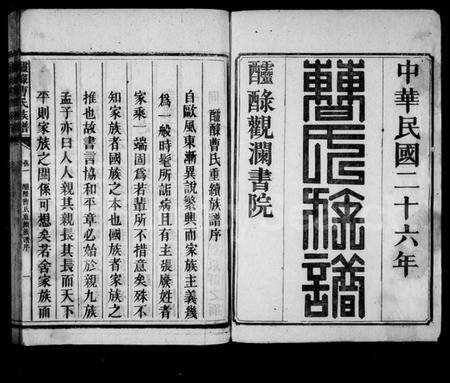 中華民國二十六年
曹氏族譜
醽醁觀瀾書院
醽醁曹氏重續族譜序
自歐風東漸異說繁興而家族主義幾
爲一般時髦所詬病且有主張廣姓者
家乘一端固爲若輩所不措意矣殊不
知家族者國族之本也國族者家族之
推也故書言協和平章必始於親九族
孟子亦曰人人親其親長其長而天下
平則家族之關係可想矣若舍家族而
醽醁曹氏族譜
卷一